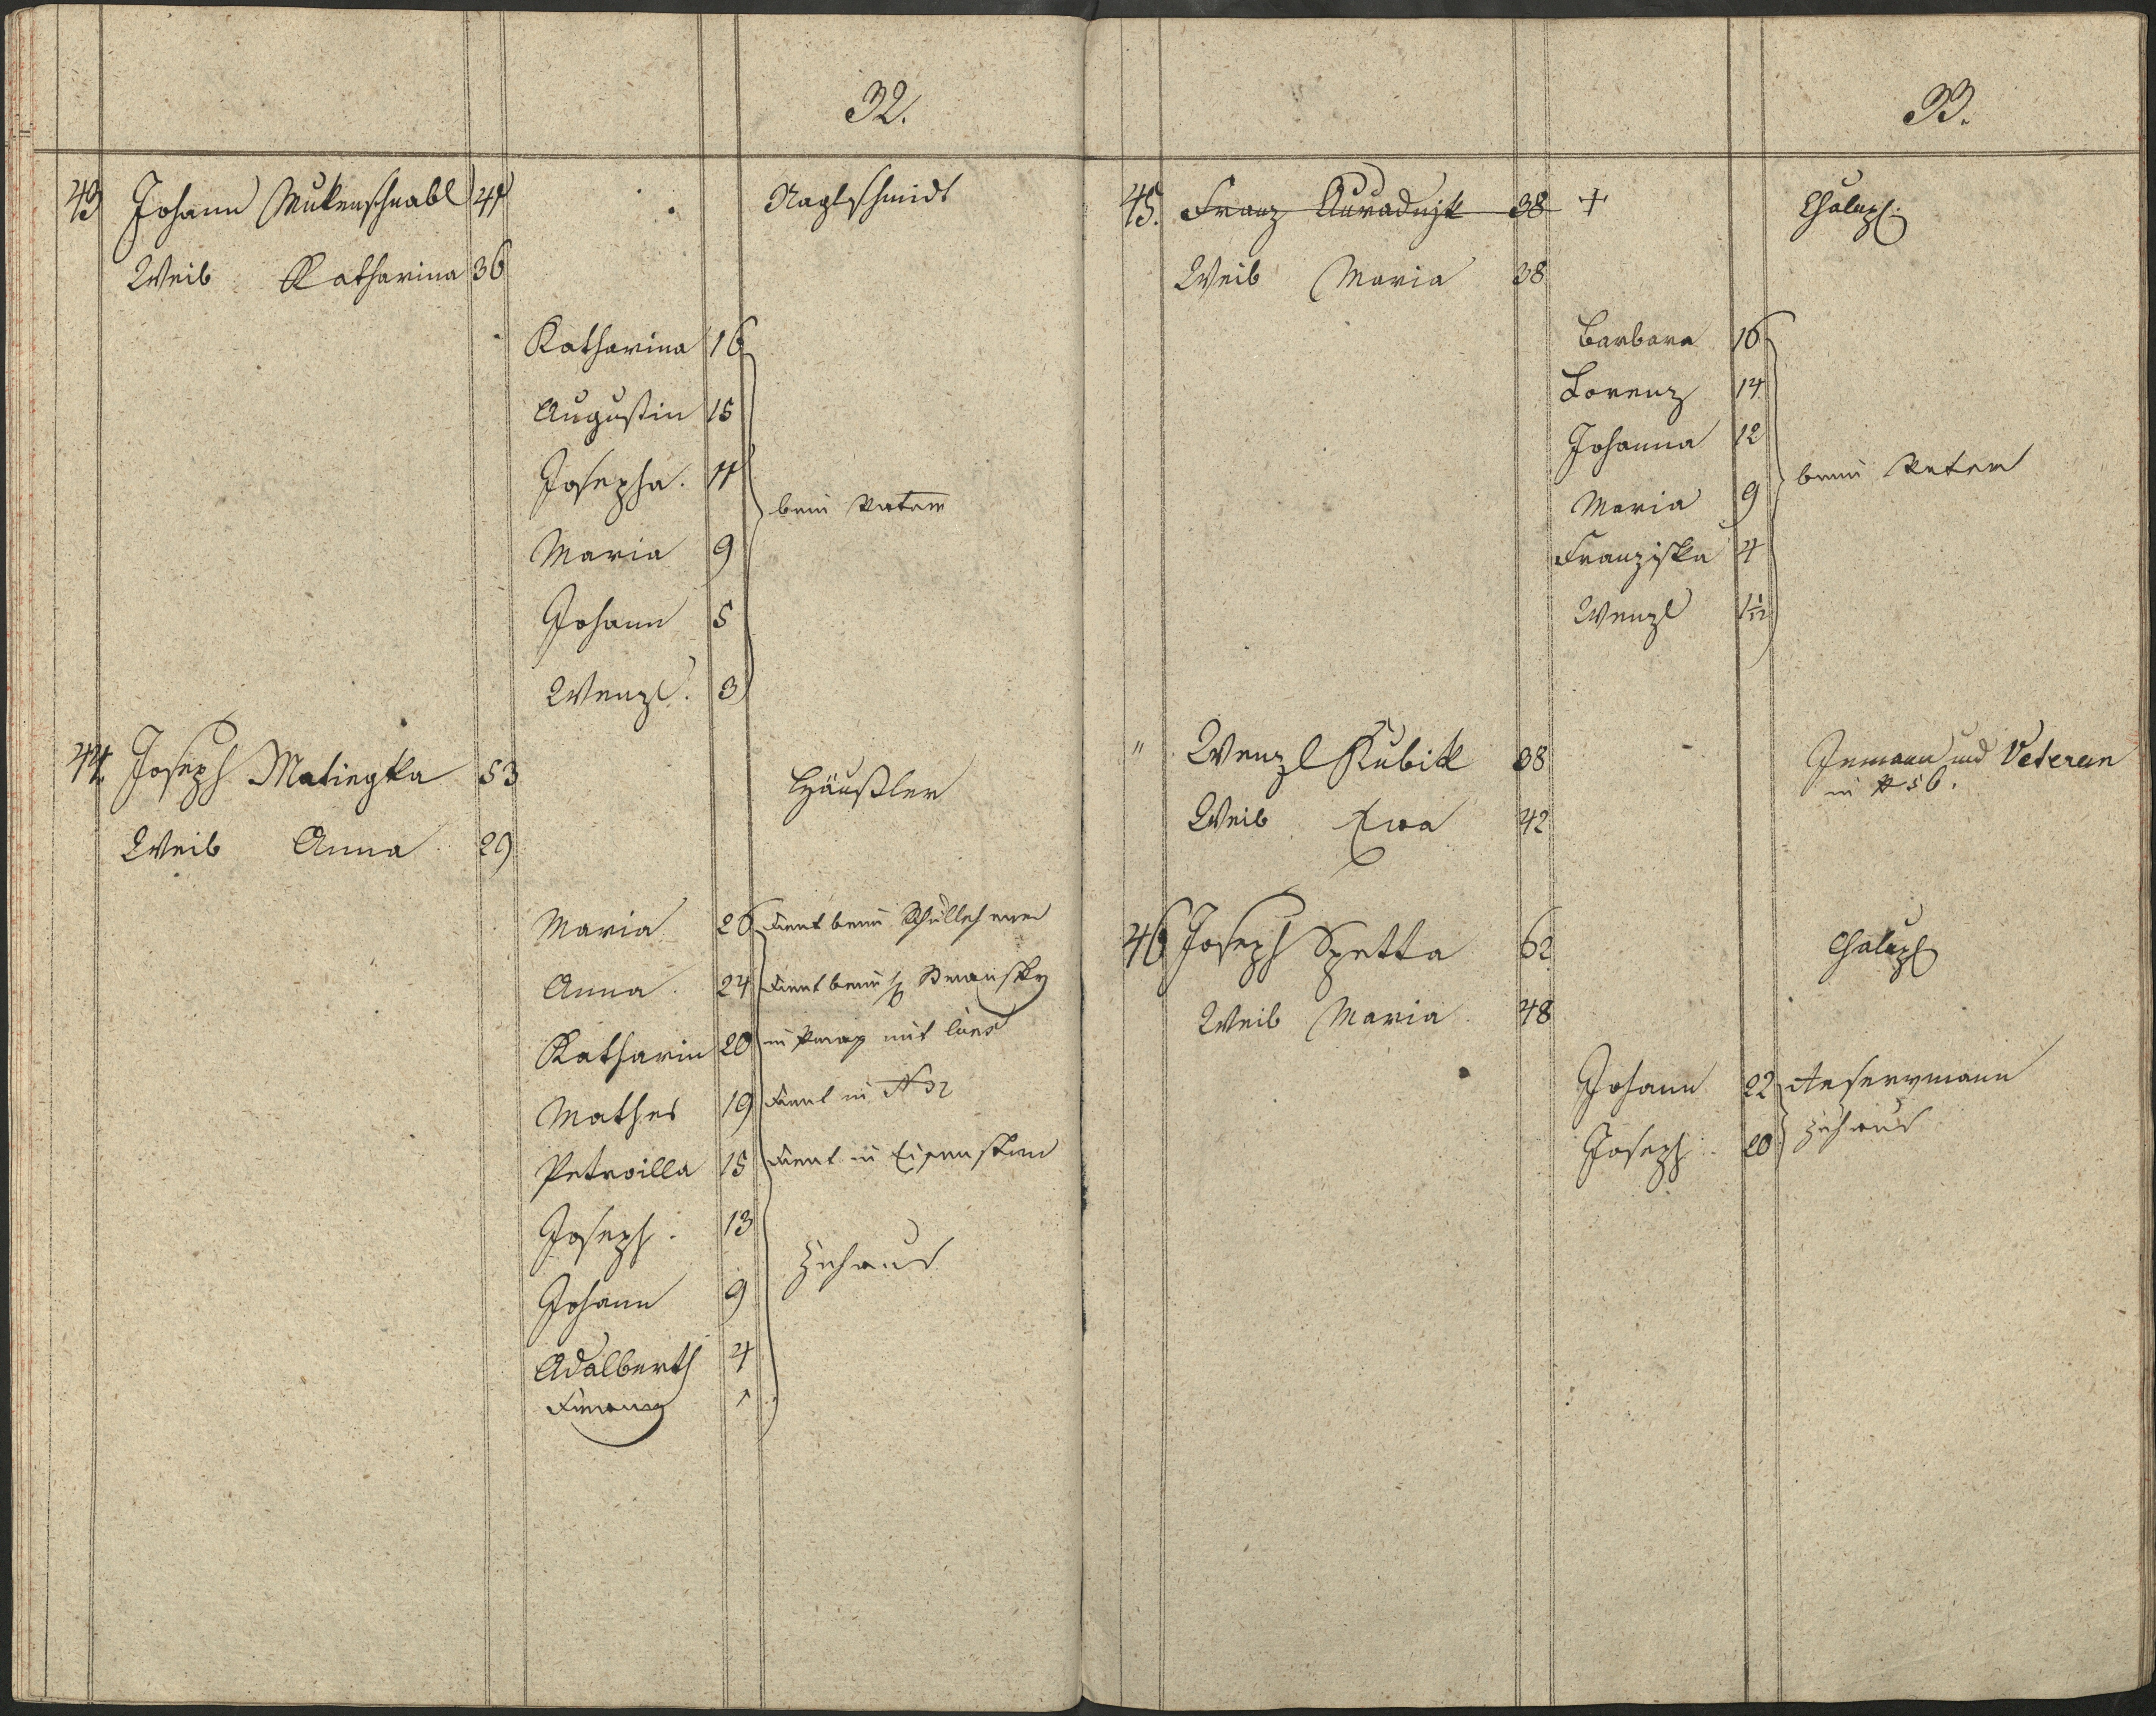 32.
43 Johann Mukenschnabl 47 Naglschmidt
Weib Katharina 36
Katharina 16
Augustin 15
Josepha. 11
beim Vater
Maria 9
Johann 5
Wenzl. 3
44. Joseph Matiegka 53 Häußler
Weib Anna 29
Maria 26 dient beim Schullehrer
Anna 24 dient beim Stransky
Katharin 20 in Prag mit
Mathes 19 dient in N 32
Petroilla 15 dient in Eisenstein
Joseph. 13
zuhaus
Johann 9
Adalberth 4
1
33.
45. Franz Auraduzk 38 + Chalup
Weib Maria 38
Barbara 16
Lorenz 14
Johanna 12
beim Vater
Maria 9
Franziska 4
Wenzl 1 1/12
" Wenzl Kubik 38 Inmann und Veteran
in N 56.
Weib Ewa 42
46 Joseph Spetta 62 Chalup
Weib Maria 48
Johann 22 Reservmann
Joseph 20 zuhaus